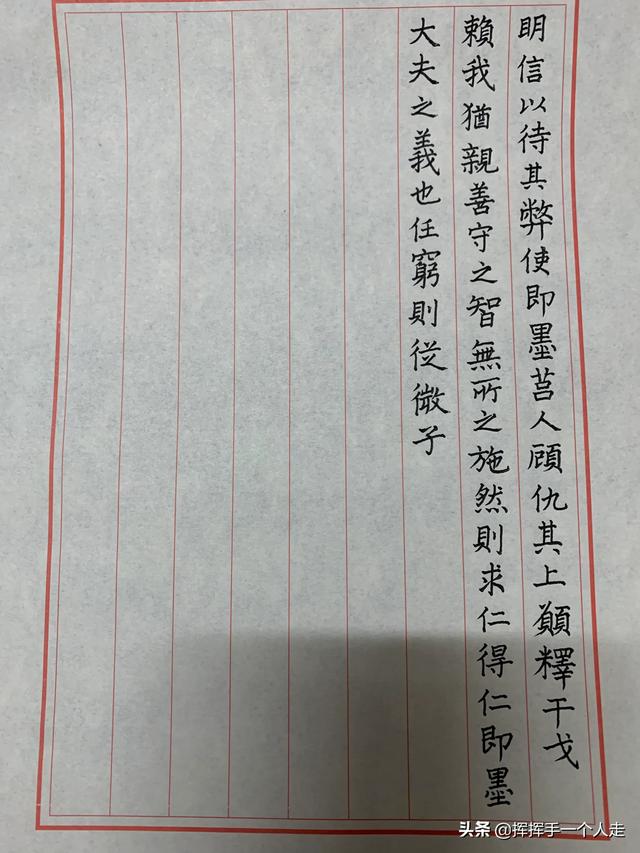 明信以待其弊使即墨莒人顧仇其上願釋干戈
賴我猶親善守之智無所之施然則求仁得仁即墨
大夫之義也任窮則從微子
头条 @挥挥手一个人走